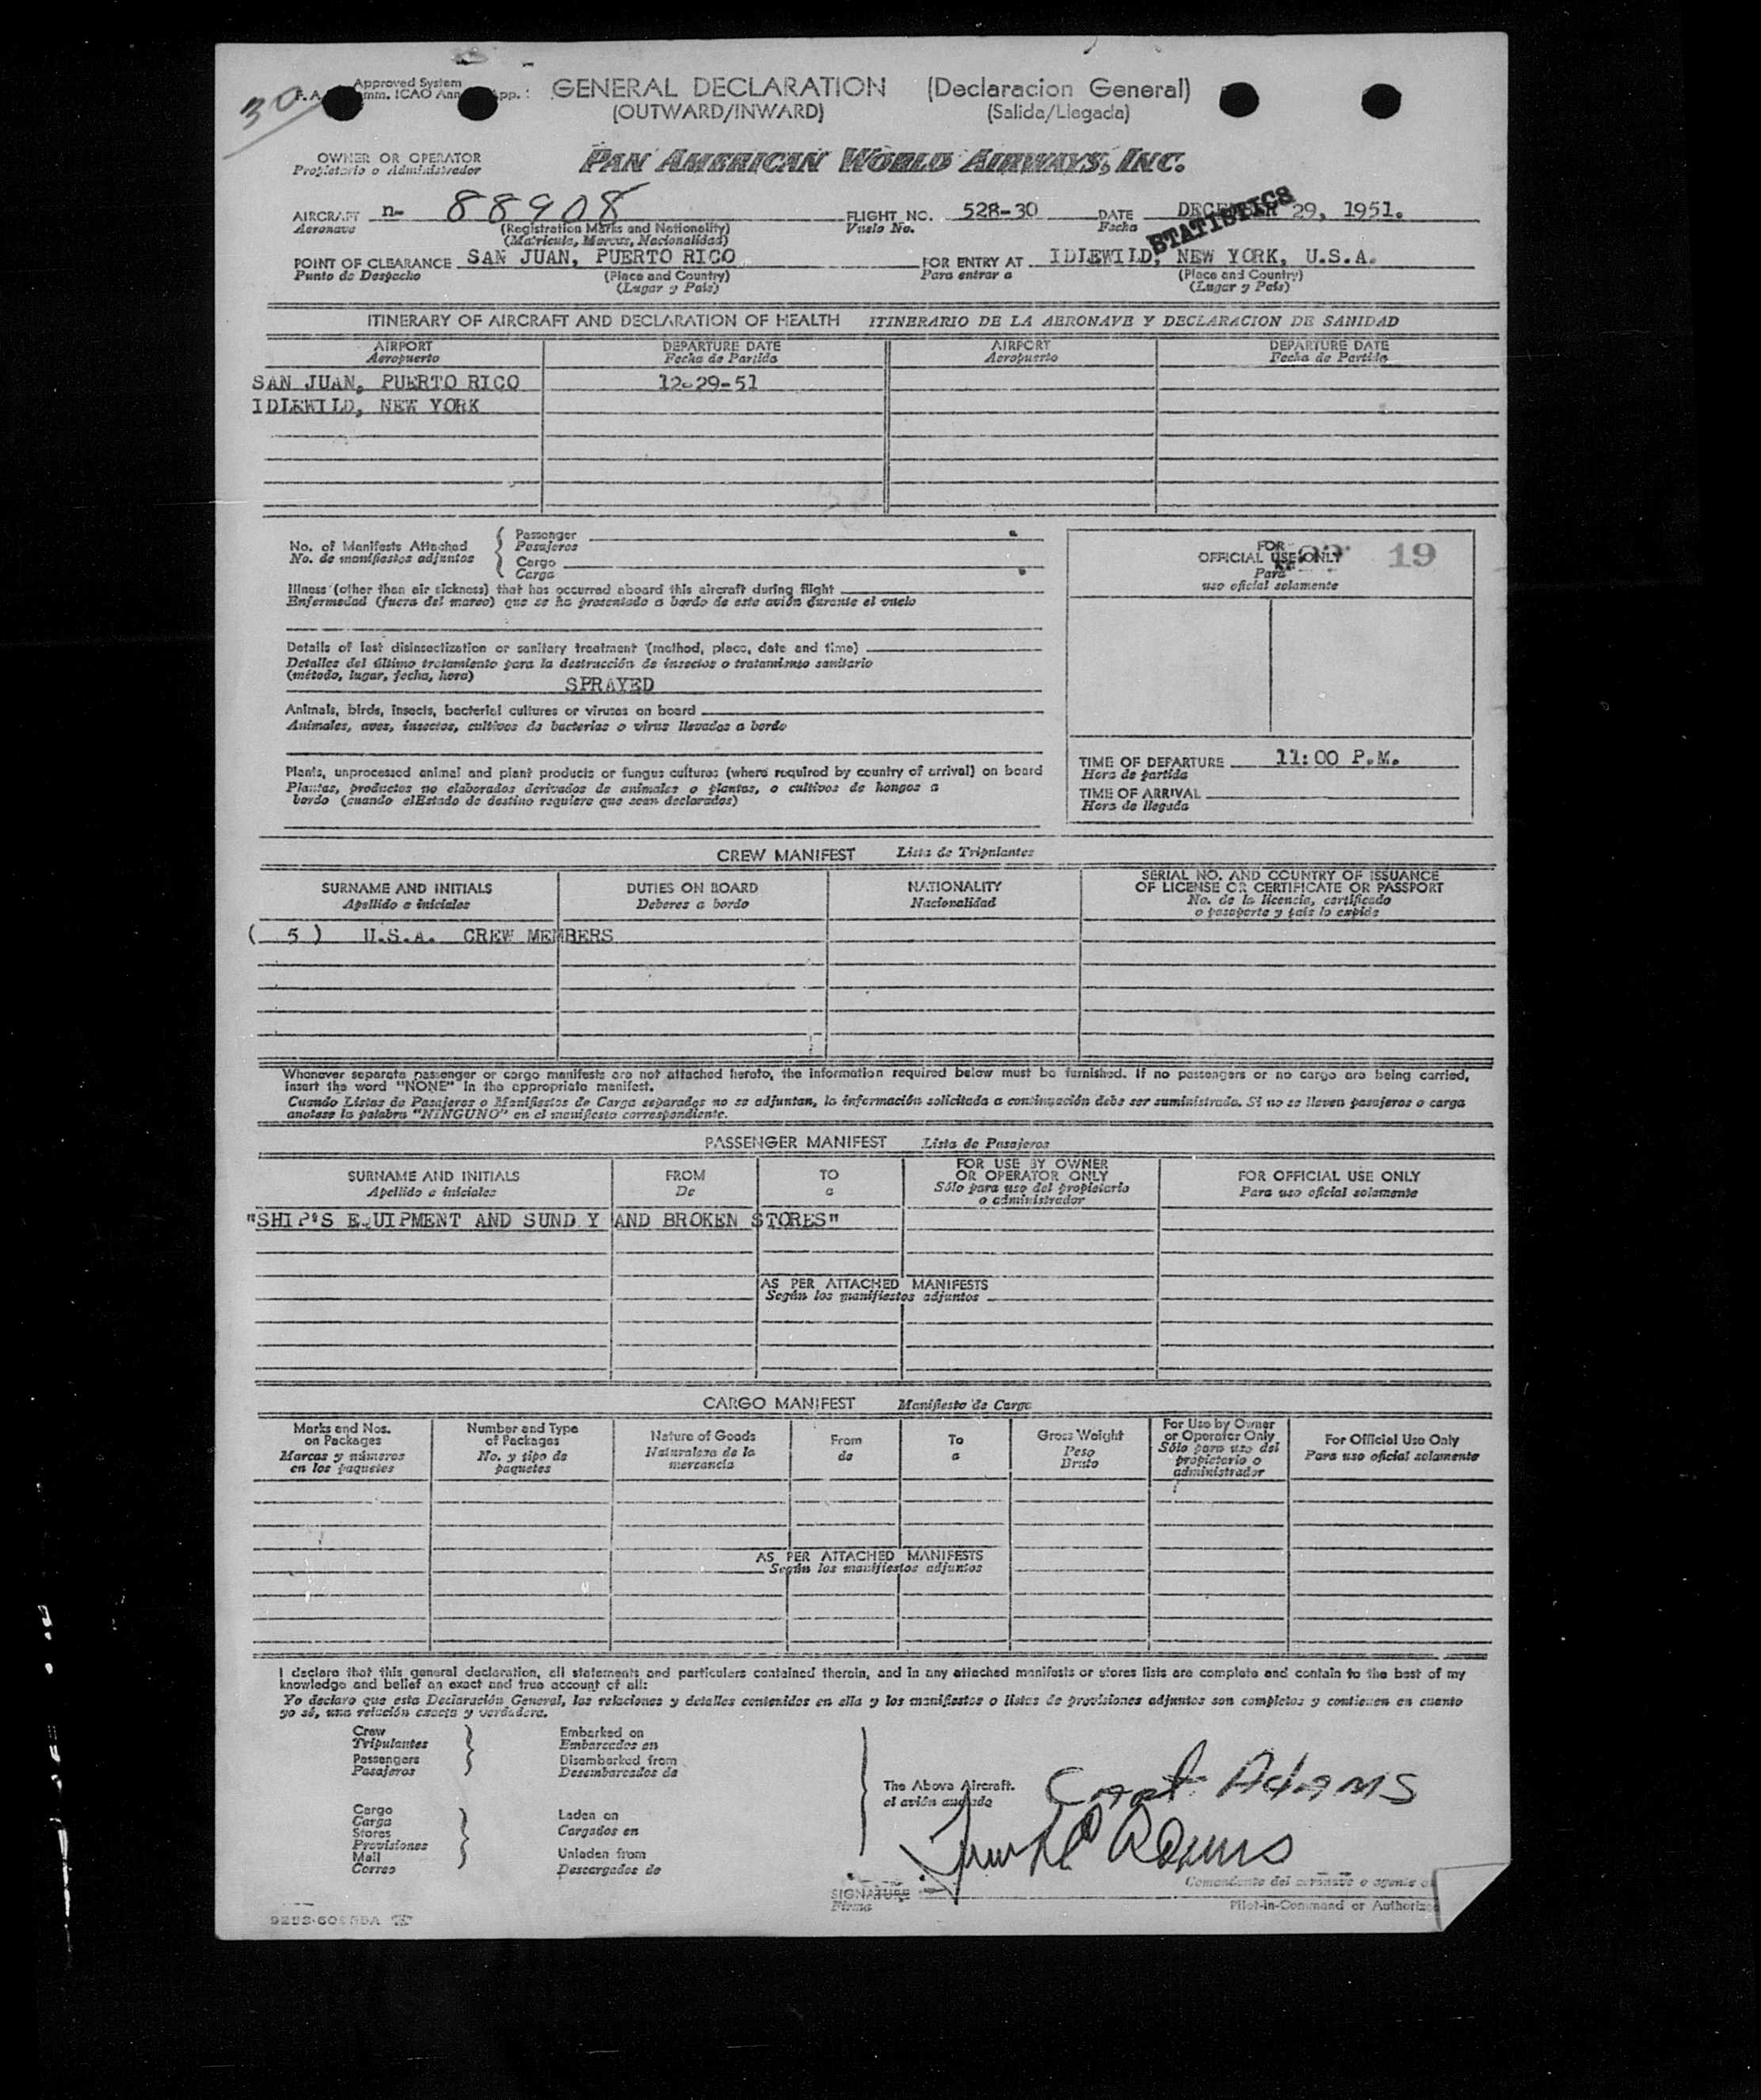 30
Approved System
GENERAL DECLARATION (Declaracion General)
(OUTWARD/INWARD) (Salida/Llegada)
OWNER OR OPERATOR PAN AMERICAN WORLD AIRWAYS, INC.
Propietario o Administrador
AIRCRAFT n- 88908 FLIGHT NO. 528-30 DATE DECEMBER 29, 1951.
Aeronave (Registration Marks and Nationality) Vuelo No. Fecha
(Matricula, Marcas, Nacionalidad) STATISTICS
POINT OF CLEARANCE SAN JUAN, PUERTO RICO FOR ENTRY AT IDLEWILD, NEW YORK, U.S.A.
Punto de Despacho (Place and Country) Para entrar a (Place and Country)
(Lugar y Pais) (Lugar y Pais)
ITINERARY OF AIRCRAFT AND DECLARATION OF HEALTH ITINERARIO DE LA AERONAVE Y DECLARACION DE SANIDAD
AIRPORT DEPARTURE DATE AIRPORT DEPARTURE DATE
Aeropuerto Fecha de Partida Aeropuerto Fecha de Partida
SAN JUAN, PUERTO RICO 12-29-51
IDLEWILD, NEW YORK
No. of Manifests Attached
No. de manifiestos adjuntos
Passenger
Pasajeros
Cargo
Carga
Illness (other than air sickness) that has occurred aboard this aircraft during flight
Enfermedad (fuera del mareo) que se ha presentado a bordo de este avión durante el vuelo
Details of last disinsectization or sanitary treatment (method, place, date and time)
Detalles del último tratamiento para la destrucción de insectos o tratamiento sanitario
(método, lugar, fecha, hora)
SPRAYED
Animals, birds, insects, bacterial cultures or viruses on board
Animales, aves, insectos, cultivos de bacterias o virus llevados a bordo
Plants, unprocessed animal and plant products or fungus cultures (where required by country of arrival) on board
Plantas, productos no elaborados derivados de animales o plantas, o cultivos de hongos a
bordo (cuando elEstado de destino requiere que sean declarados)
FOR
OFFICIAL USE ONLY 19
Para
uso oficial solamente
TIME OF DEPARTURE 11:00 P.M.
Hora de partida
TIME OF ARRIVAL
Hora de llegada
CREW MANIFEST Lista de Tripulantes
SURNAME AND INITIALS DUTIES ON BOARD NATIONALITY SERIAL NO. AND COUNTRY OF ISSUANCE
OF LICENSE OR CERTIFICATE OR PASSPORT
Apellido e iniciales Deberes a bordo Nacionalidad No. de la licencia, certificado
o pasaporte y país lo expide
( 5 ) U.S.A. CREW MEMBERS
Whenever separate passenger or cargo manifests are not attached hereto, the information required below must be furnished. If no passengers or no cargo are being carried,
insert the word "NONE" in the appropriate manifest.
Cuando Listas de Pasajeros o Manifiestos de Carga separados no se adjuntan, la información solicitada a continuación debe ser suministrada. Si no se lleven pasajeros o carga
anotese la palabra "NINGUNO" en el manifiesto correspondiente.
PASSENGER MANIFEST Lista de Pasajeros
SURNAME AND INITIALS FROM TO FOR USE BY OWNER
OR OPERATOR ONLY FOR OFFICIAL USE ONLY
Apellido e iniciales De a Sólo para uso del propietario
o administrador Para uso oficial solamente
"SHIP'S EQUIPMENT AND SUND Y AND BROKEN STORES"
AS PER ATTACHED MANIFESTS
Según los manifiestos adjuntos
CARGO MANIFEST Manifiesto de Carga
Marks and Nos.
on Packages
Marcas y números
en los paquetes
Number and Type
of Packages
No. y tipo de
paquetes
Nature of Goods
Naturaleza de la
mercancía
From
de
To
a
Gross Weight
Peso
Bruto
For Use by Owner
or Operator Only
Sólo para uso del
propietario o
administrador
For Official Use Only
Para uso oficial solamente
AS PER ATTACHED MANIFESTS
Según los manifiestos adjuntos
I declare that this general declaration, all statements and particulars contained therein, and in any attached manifests or stores lists are complete and contain to the best of my
knowledge and belief an exact and true account of all:
Yo declaro que esta Declaración General, las relaciones y detalles contenidos en ella y los manifiestos o listas de provisiones adjuntos son completos y contienen en cuanto
yo sé, una relación exacta y verdadera.
Crew
Tripulantes
Passengers
Pasajeros
Embarked on
Embarcados en
Disembarked from
Desembarcados de
Cargo
Carga
Stores
Provisiones
Mail
Correo
Laden on
Cargados en
Unladen from
Descargados de
The Above Aircraft.
el avión
Capt. Adams
Adams
SIGNATURE
Firma
Comandante del aeronave o agente
Pilot-in-Command or Authorized